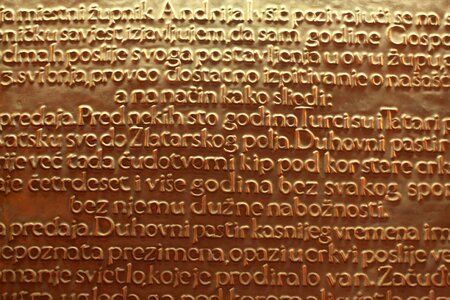 omjesni župnik Andrija Kušić pozivajući se na s
ničku savjest, izjavljujem da sam godine Gosp
dmah poslije svoga postavljenja u ovu župu
3. svibnja, proveo dostatno ispitivanje o našašć
a na način kako slijedi:
predaja. Pred nekih sto godina Turci su i Tatari p
atsku sve do Zlatarskog polja. Duhovni pastir
ije već tada čudotvorni kip pod kor stare crk
aje četrdeset i više godina bez svakog spor
bez njemu dužne nabožnosti.
predaja. Duhovni pastir kasnijeg vremena im
epoznata prezimena, opazi u crkvi poslije ve
omanje svjetlo, koje je prodiralo van. Začuđ